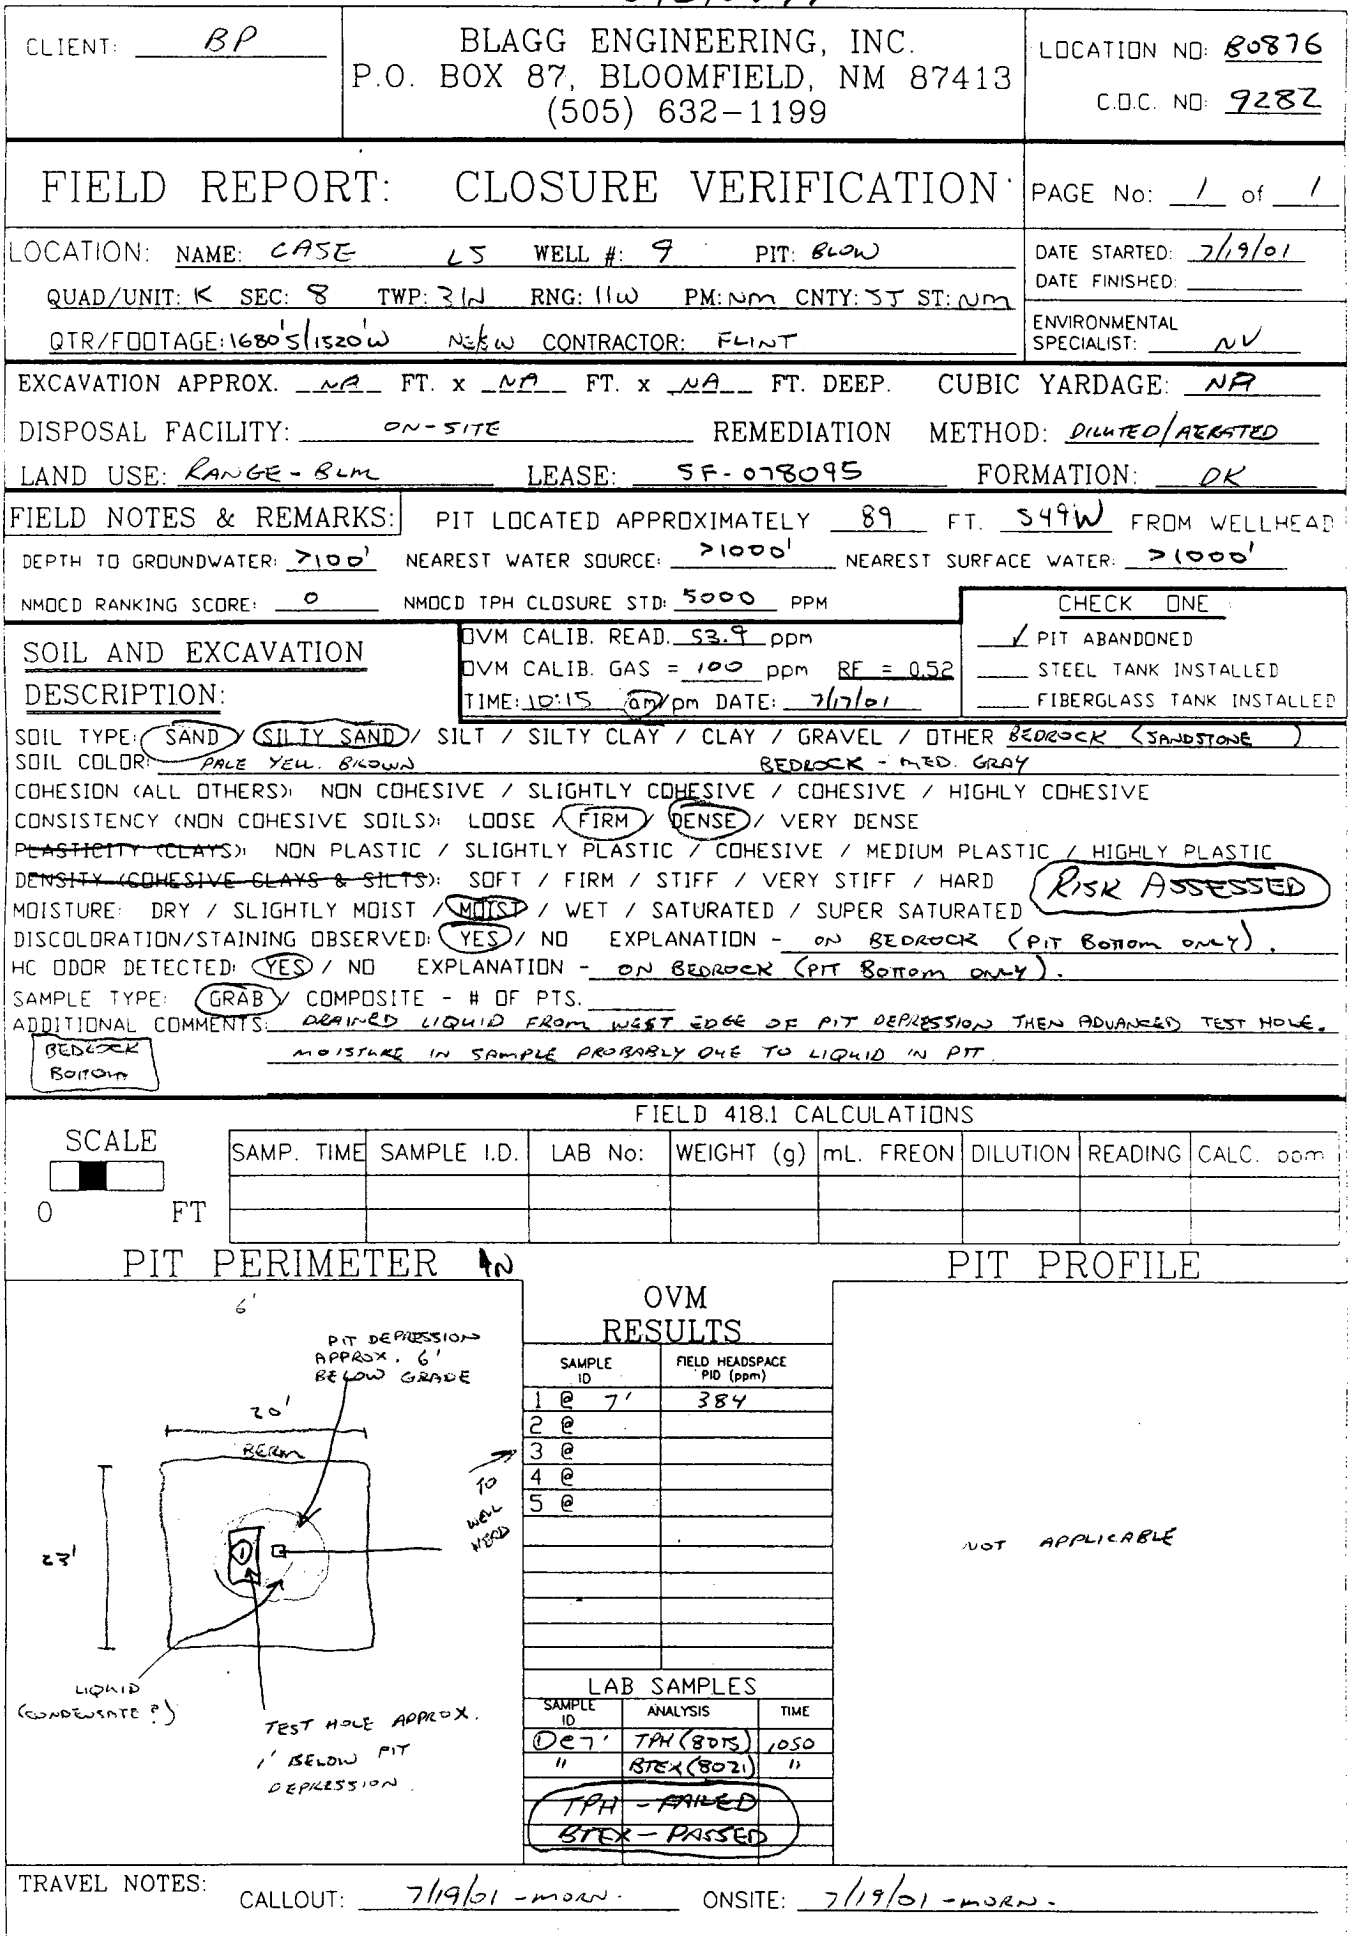 CLIENT: BP
BLAGG ENGINEERING, INC.
P.O. BOX 87, BLOOMFIELD, NM 87413
(505) 632-1199
LOCATION NO: B0876
C.O.C. NO: 9282
FIELD REPORT: CLOSURE VERIFICATION
PAGE No: 1 of 1
LOCATION: NAME: CASE LS WELL #: 9 PIT: BLOW
QUAD/UNIT: K SEC: 8 TWP: 31N RNG: 11W PM: NM CNTY: SJ ST: NM
QTR/FOOTAGE: 1680'S/1520'W NE/SW CONTRACTOR: FLINT
DATE STARTED: 7/19/01
DATE FINISHED:
ENVIRONMENTAL
SPECIALIST: NV
EXCAVATION APPROX. NA FT. x NA FT. x NA FT. DEEP. CUBIC YARDAGE: NA
DISPOSAL FACILITY: ON-SITE REMEDIATION METHOD: DILUTED/AERATED
LAND USE: RANGE - BLM LEASE: SF-078095 FORMATION: DK
FIELD NOTES & REMARKS: PIT LOCATED APPROXIMATELY 89 FT. S49W FROM WELLHEAD
DEPTH TO GROUNDWATER: >100' NEAREST WATER SOURCE: >1000' NEAREST SURFACE WATER: >1000'
NMOCD RANKING SCORE: 0 NMOCD TPH CLOSURE STD: 5000 PPM
CHECK ONE :
✓ PIT ABANDONED
STEEL TANK INSTALLED
FIBERGLASS TANK INSTALLED
SOIL AND EXCAVATION
DESCRIPTION:
OVM CALIB. READ. 53.9 ppm
OVM CALIB. GAS = 100 ppm RF = 0.52
TIME: 10:15 am/pm DATE: 7/17/01
SOIL TYPE: SAND / SILTY SAND / SILT / SILTY CLAY / CLAY / GRAVEL / OTHER BEDROCK (SANDSTONE )
SOIL COLOR: PALE YELL. BROWN BEDROCK - MED. GRAY
COHESION (ALL OTHERS): NON COHESIVE / SLIGHTLY COHESIVE / COHESIVE / HIGHLY COHESIVE
CONSISTENCY (NON COHESIVE SOILS): LOOSE / FIRM / DENSE / VERY DENSE
PLASTICITY (CLAYS): NON PLASTIC / SLIGHTLY PLASTIC / COHESIVE / MEDIUM PLASTIC / HIGHLY PLASTIC
DENSITY (COHESIVE CLAYS & SILTS): SOFT / FIRM / STIFF / VERY STIFF / HARD
RISK ASSESSED
MOISTURE: DRY / SLIGHTLY MOIST / MOIST / WET / SATURATED / SUPER SATURATED
DISCOLORATION/STAINING OBSERVED: YES / NO EXPLANATION - ON BEDROCK (PIT BOTTOM ONLY).
HC ODOR DETECTED: YES / NO EXPLANATION - ON BEDROCK (PIT BOTTOM ONLY).
SAMPLE TYPE: GRAB / COMPOSITE - # OF PTS.
ADDITIONAL COMMENTS: DRAINED LIQUID FROM WEST EDGE OF PIT DEPRESSION THEN ADVANCED TEST HOLE.
MOISTURE IN SAMPLE PROBABLY DUE TO LIQUID IN PIT.
BEDROCK
BOTTOM
FIELD 418.1 CALCULATIONS
SCALE
0 FT
SAMP. TIME SAMPLE I.D. LAB No: WEIGHT (g) mL. FREON DILUTION READING CALC. ppm
PIT PERIMETER N
PIT PROFILE
6'
PIT DEPRESSION
APPROX. 6'
BELOW GRADE
20'
BERM
23'
1
TO
WELL
HEAD
LIQUID
(CONDENSATE?)
TEST HOLE APPROX.
1' BELOW PIT
DEPRESSION.
OVM
RESULTS
SAMPLE ID FIELD HEADSPACE PID (ppm)
1 @ 7' 384
2 @
3 @
4 @
5 @
LAB SAMPLES
SAMPLE ID ANALYSIS TIME
①@7' TPH (8015) 1050
" BTEX (8021) "
TPH - FAILED
BTEX - PASSED
NOT APPLICABLE
TRAVEL NOTES: CALLOUT: 7/19/01 - MORN. ONSITE: 7/19/01 - MORN.